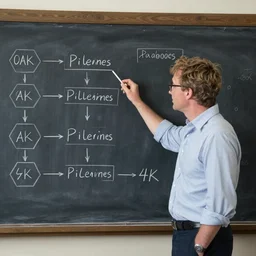 OAK Pilernes
Paoboces
AK Pillcmes
AK Pilernies
SK Pilearnes 4K